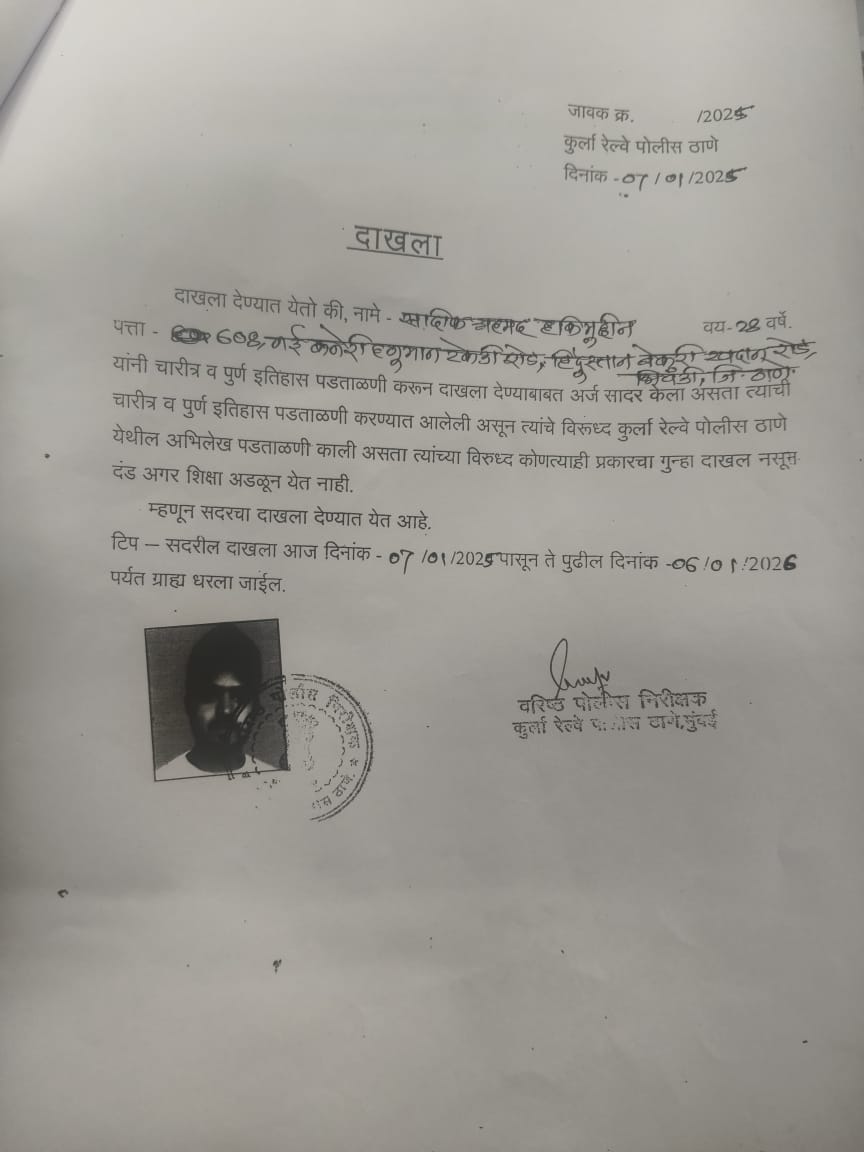 जावक क्र. /2025
कुर्ला रेल्वे पोलीस ठाणे
दिनांक -07/01/2025
दाखला
दाखला देण्यात येतो की, नामे - सादीक अहमद हकिमुद्दीन वय-28 वर्षे.
पत्ता - 608, नई कनेरी हनुमान टेकडी रोड, हिंदुस्तान बेकरी खदान रोड,
भिवंडी, जि. ठाणे.
यांनी चारीत्र व पुर्ण इतिहास पडताळणी करून दाखला देण्याबाबत अर्ज सादर केला असता त्यांची
चारीत्र व पुर्ण इतिहास पडताळणी करण्यात आलेली असून त्यांचे विरूध्द कुर्ला रेल्वे पोलीस ठाणे
येथील अभिलेख पडताळणी काली असता त्यांच्या विरुध्द कोणत्याही प्रकारचा गुन्हा दाखल नसून
दंड अगर शिक्षा अडळून येत नाही.
म्हणून सदरचा दाखला देण्यात येत आहे.
टिप – सदरील दाखला आज दिनांक - 07/01/2025 पासून ते पुढील दिनांक -06/01/2026
पर्यत ग्राह्य धरला जाईल.
वरिष्ठ पोलीस निरीक्षक
कुर्ला रेल्वे पोलीस ठाणे, मुंबई